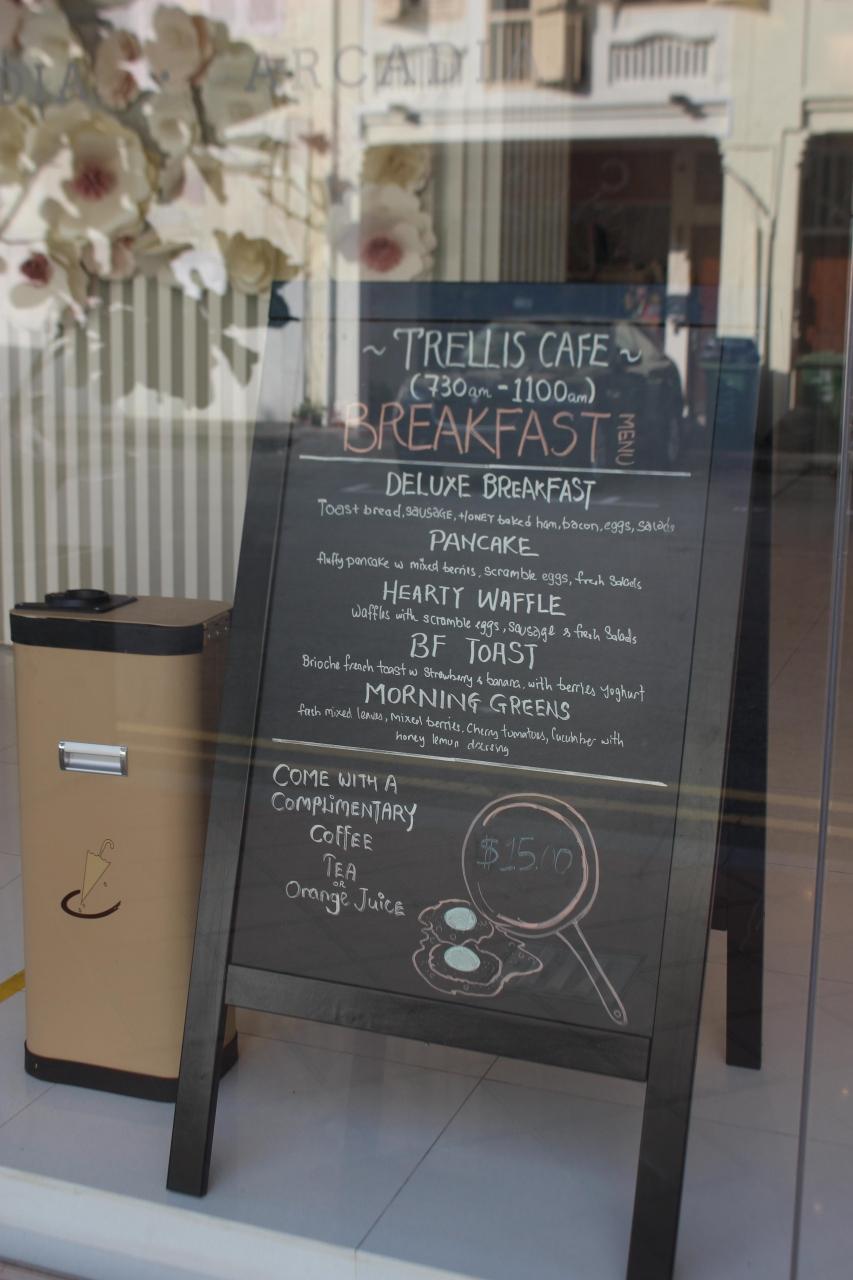 DIA · ARCADIA
~ TRELLIS CAFE ~
(730am - 1100am)
BREAKFAST MENU
DELUXE BREAKFAST
Toast bread, SAUSAGE, HONEY baked ham, bacon, eggs, Salads
PANCAKE
fluffy pancake w mixed berries, scramble eggs, fresh Salads
HEARTY WAFFLE
Waffles with scramble eggs, Sausage & fresh Salads
BF TOAST
Brioche french toast w Strawberry & banana, with berries yoghurt
MORNING GREENS
fresh mixed leaves, mixed berries, Cherry tomatoes, Cucumber with
honey lemon dressing
COME WITH A
COMPLIMENTARY
COFFEE
TEA
OR
Orange Juice
$15.00